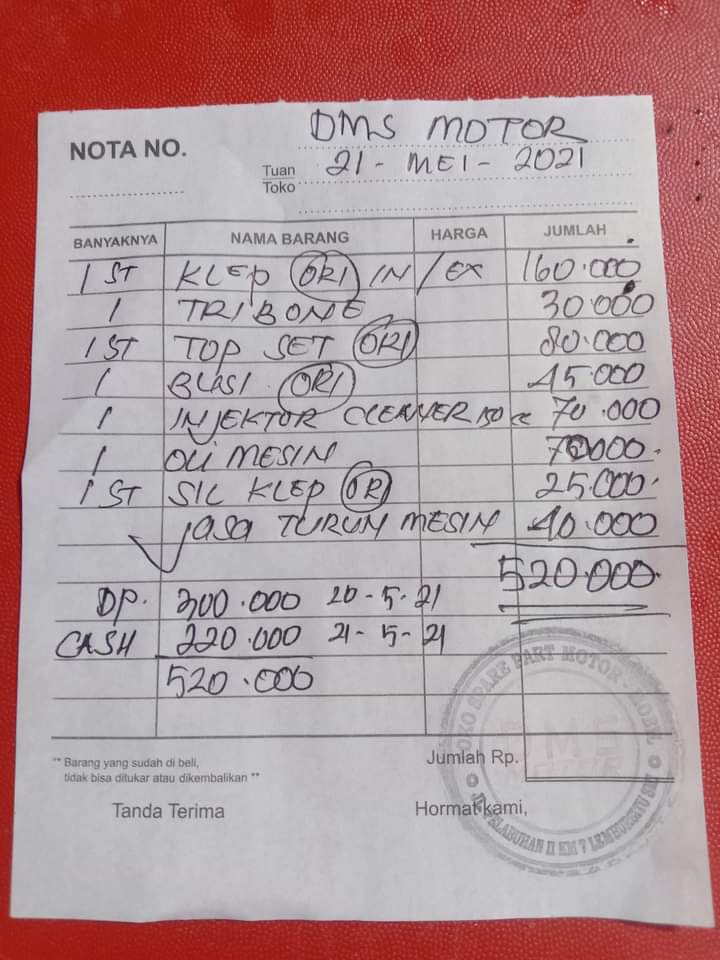 DMS MOTOR
NOTA NO.
Tuan 21 - MEI - 2021
Toko
BANYAKNYA NAMA BARANG HARGA JUMLAH
1 ST KLEP ORI IN / EX 160.000
1 TRIBONE 30.000
1 ST TOP SET ORI 80.000
1 BUSI ORI 45.000
1 INJEKTOR CLEANER 150 cc 70.000
1 OLI MESIN 70000.
1 ST SIL KLEP ORI 25.000.
JASA TURUN MESIN 40.000
520.000.
DP. 300.000 20 - 5 - 21
CASH 220.000 21 - 5 - 21
520.000
** Barang yang sudah di beli,
tidak bisa ditukar atau dikembalikan **
Jumlah Rp.
Tanda Terima Hormat kami,
TOKO SPARE PART MOTOR - MOBIL
DMS
MOTOR
PELABUHAN II KM 7 LEMBURSITU